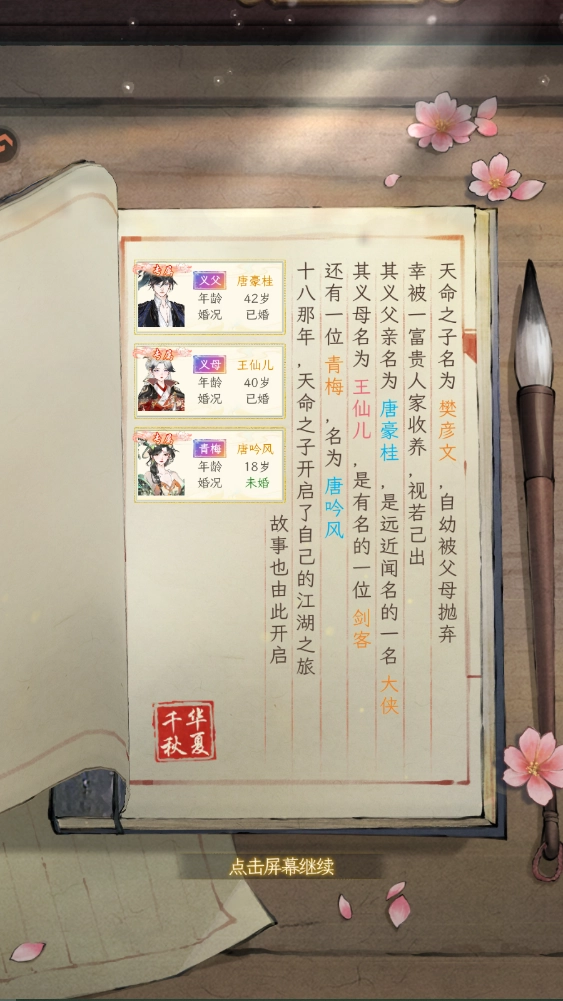 天命之子名为 樊彦文 ，自幼被父母抛弃
幸被一富贵人家收养，视若己出
其义父亲名为 唐豪桂 ，是远近闻名的一名 大侠
其义母名为 王仙儿 ，是有名的一位 剑客
还有一位 青梅 ，名为 唐吟风
十八那年，天命之子开启了自己的江湖之旅
故事也由此开启
义父 唐豪桂
年龄 42岁
婚况 已婚
义母 王仙儿
年龄 40岁
婚况 已婚
青梅 唐吟风
年龄 18岁
婚况 未婚
华夏
千秋
点击屏幕继续